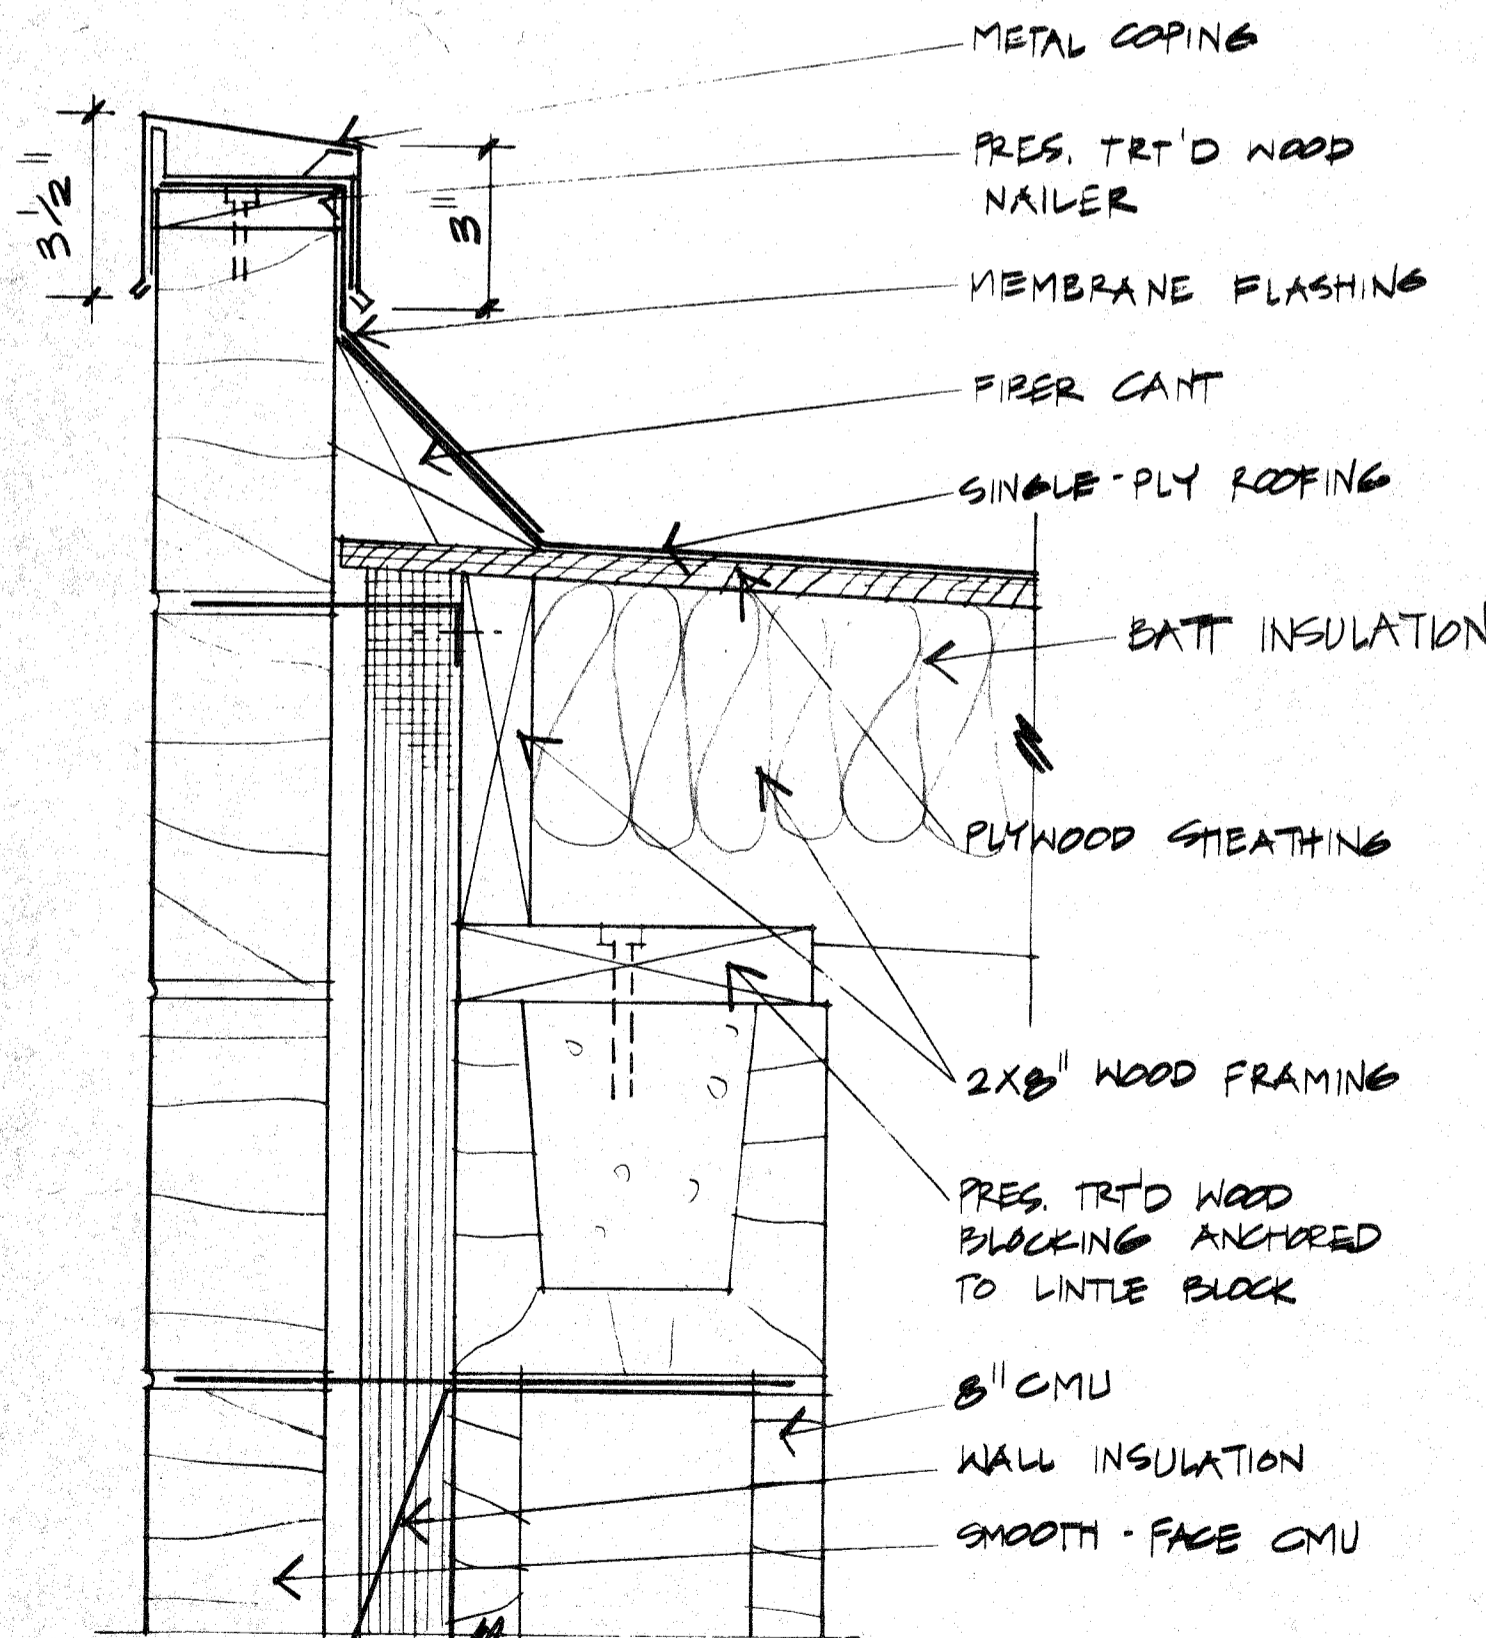 METAL COPING
PRES. TRT'D WOOD
NAILER
3 1/2"
3"
MEMBRANE FLASHING
FIBER CANT
SINGLE-PLY ROOFING
BATT INSULATION
PLYWOOD SHEATHING
2X8" WOOD FRAMING
PRES. TRT'D WOOD
BLOCKING ANCHORED
TO LINTLE BLOCK
8" CMU
WALL INSULATION
SMOOTH - FACE CMU